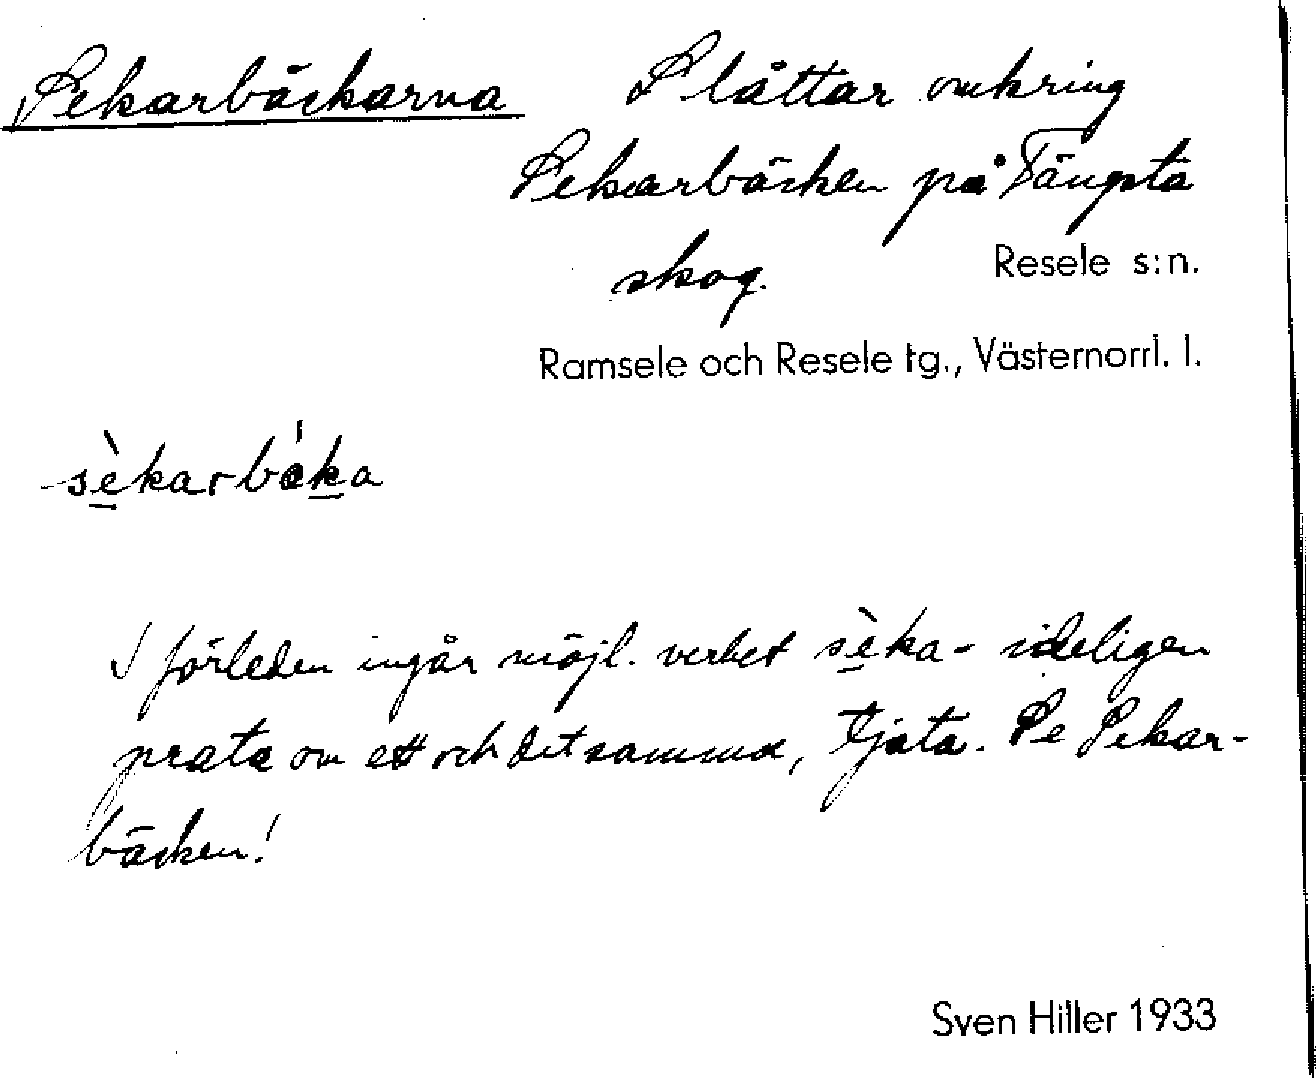 Sekarbäckarna Slåttar omkring
Sekarbäcken på Tängsta
skog. Resele s:n.
Ramsele och Resele tg., Västernorrl. l.
sèkarbáka
I förleden ingår möjl. verbet sèka - ideligen
prata om ett och detsamma, tjata. Se Sekar-
bäcken!
Sven Hiller 1933